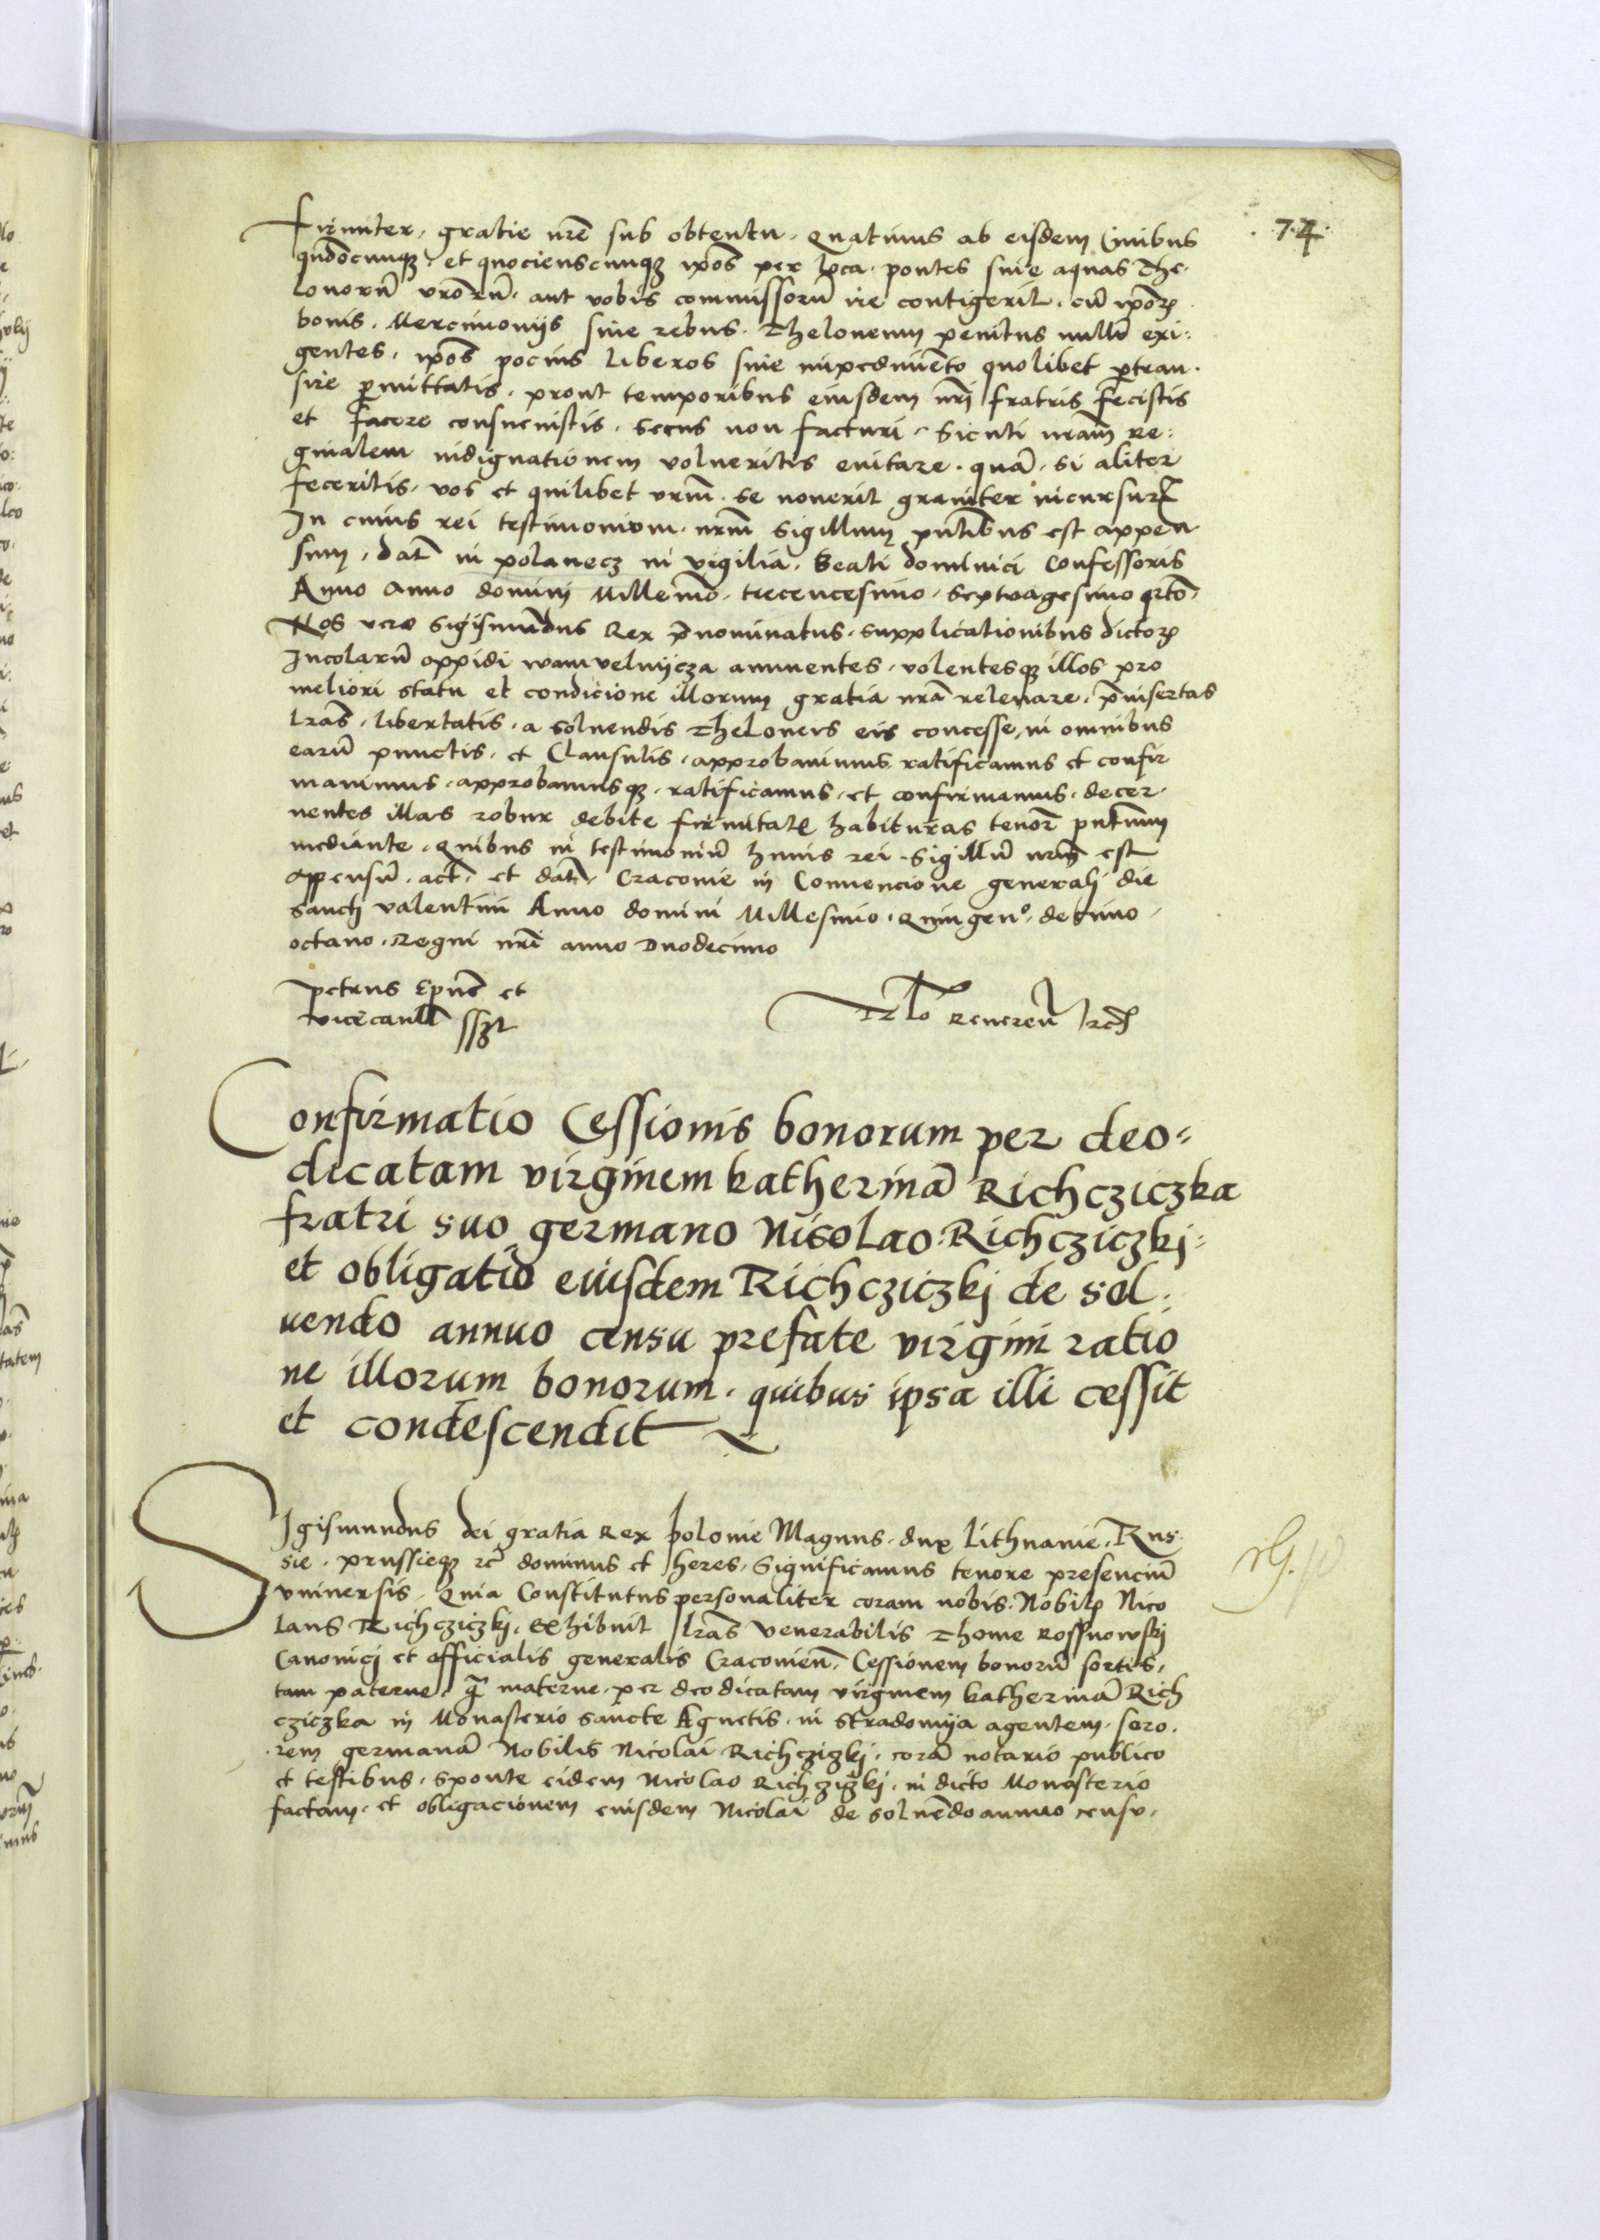 74
firmiter, gratie nr̃e sub obtentu, quatinus ab eisdem Ciuibus
qñdocunqz, et quocienscunqz ip̃os per loca, pontes siue aquas The-
loneorũ vr̃orũ, aut vobis commissorũ ire contigerit, cũ ip̃orꝫ
bonis, Mercimoniis siue rebus, Theloneum penitus nullũ exi-
gentes, ip̃os pocius liberos sine impedimẽto quolibet ꝑtran-
sire ꝑmittatis, prout temporibus eiusdem nr̃i fratris fecistis
et facere consueuistis, secus non facturi, Sicuti nr̃am Re-
ginalem indignationem volueritis euitare, quã, si aliter
feceritis, vos et quilibet vr̃m se nouerit grauiter incursurũ
In cuius rei testimonium, nr̃m sigillum pñtibus est appen
sum, dat̃ in polanecz in vigilia, Beati dominici Confessoris
Anno anno domini Millemõ, trecencesimo, septuagesimo qrtõ,
Nos vero Sigismundus Rex p̃nominatus, supplicationibus dictorꝫ
Incolarũ oppidi wamvelnijcza annuentes, volentesqz illos pro
meliori statu et condicione illorum gratia nr̃a releuare, p̃insertas
lr̃as, libertatis, a soluendis Theloneis eis concesse, in omnibus
earũ punctis, et Clausulis, approbauimus ratificamus et confir
mauimus, approbamusqz, ratificamus, et confirmamus, decer-
nentes illas robur debite firmitatis habituras tenorẽ pñtium
mediante, Quibus in testimoniũ huius rei Sigillũ nr̃m est
appensũ, act̃, et dat̃, Cracouie in Conuencione generali die
sancti valentini Anno domini Millesimo, Quingenº, decimo,
octauo, Regni nr̃i anno Duodecimo
petrus Ep̃us et
vicecanll̃ sszt
Rlo Reueren̄
Confirmatio Cessionis bonorum per deo-
dicatam virginem katherinã Richcziczka
fratri suo germano Nicolao Richcziczkj
et obligatio eiusdem Richcziczkj de sol-
uendo annuo censu prefate virgini ratio
ne illorum bonorum, quibus ipsa illi cessit
et condescendit
SIgismundus dei gratia Rex polonie Magnus, dux Lithuanie, Rus
sie, prussieqz rc̃ dominus et heres, Significamus tenore presenciũ
vniuersis, Quia Constitutus personaliter coram nobis, Nobilꝫ Nico
laus Richcziczkj, Exhibuit lr̃as Venerabilis Thome Rossnowskj
Canonici et officialis generalis Cracouien̄, Cessionem bonorũ sortis,
tam paterne, q̃ materne, per deodicatam virginem katherinã Rich
cziczka in Monasterio sancte Agnetis, in stradomija agentem, soro-
rem germanã Nobilis Nicolai Richcziczkj, corã notario publico
et testibus, sponte eidem Nicolao Richcziczkj, in dicto Monasterio
factam, et obligacionem eiusdem Nicolai de soluẽdo annuo censu,